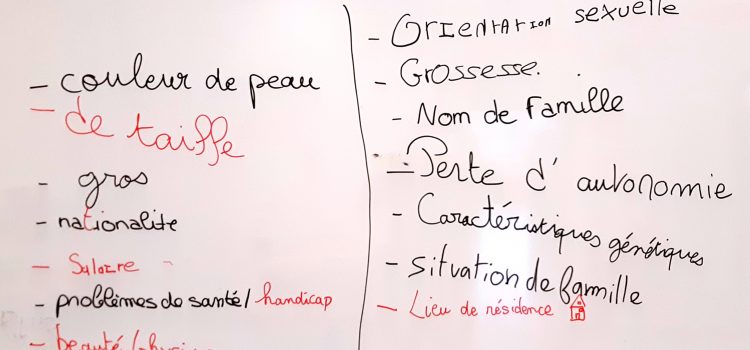 - couleur de peau
- de taiffe
- gros
- nationalite
- Salaire
- problèmes de santé/ handicap
- beauté /
- Orientation sexuelle
- Grossesse.
- Nom de famille
- Perte d'autonomie
- Caractéristiques génétiques
- situation de famille
- Lieu de résidence